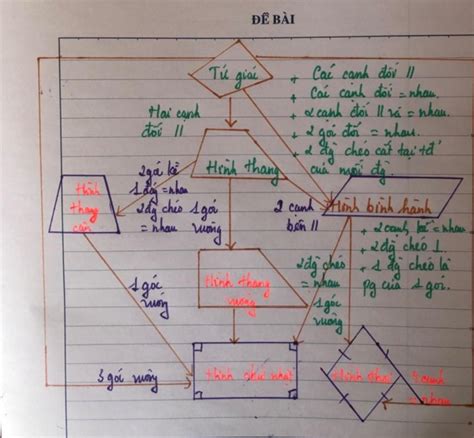 ĐỀ BÀI
Tứ giác
+ Các cạnh đối //
+ Các cạnh đối = nhau.
+ 2 cạnh đối // và = nhau.
+ 2 gói đối = nhau.
+ 2 đg chéo cắt tại tđ
của mỗi đg.
Hai cạnh
đối //
Hình thang
2 gá kề
1 đg = nhau
2 đg chéo
= nhau
1 gói
vuông
Hình
thang
cân
2 cạnh
bên //
Hình bình hành
+ 2 cạnh kề = nhau
+ 2 đg chéo ⊥
+ 1 đg chéo là
pg của 1 gói.
2 đg chéo
= nhau
1 góc
vuông
1 góc
vuông
Hình thang
vuông
3 gói vuông
Hình chữ nhật
Hình thoi
4 cạnh
= nhau